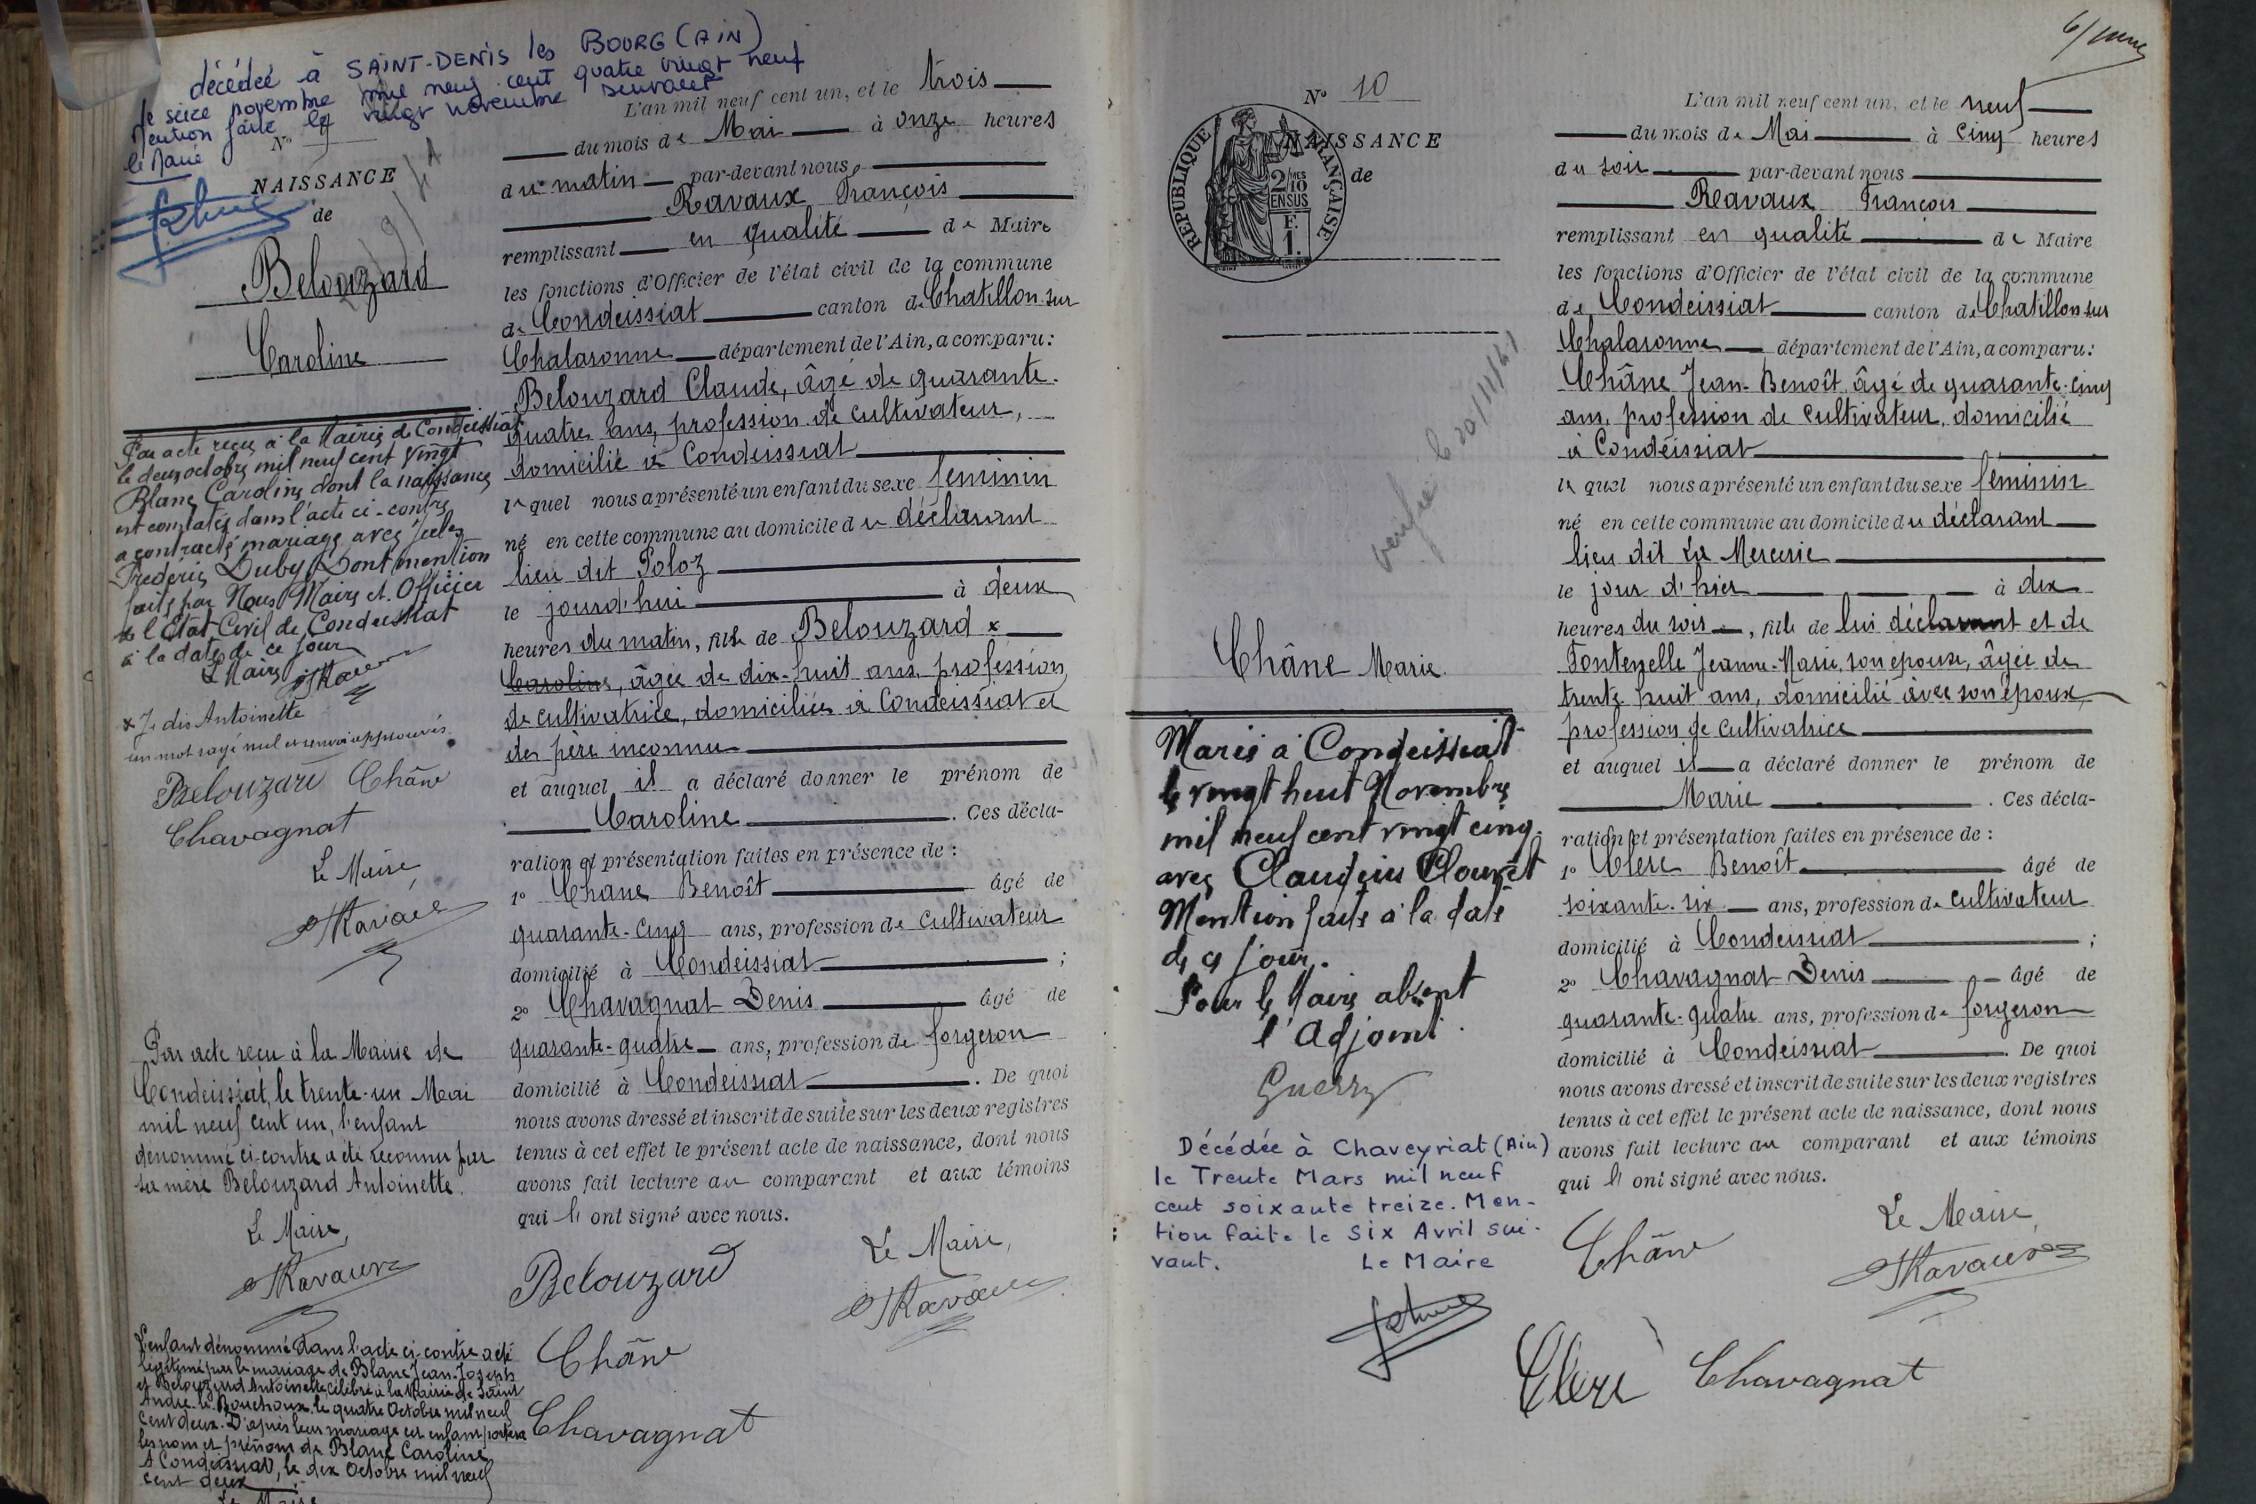 décédée à SAINT-DENIS les BOURG (AIN)
le seize novembre mil neuf cent quatre vingt neuf
Mention faite le vingt novembre suivant
le Maire
N° 9
NAISSANCE
de
Belouzard
Caroline
Par acte reçu à la Mairie de Condeissiat
le deux octobre mil neuf cent vingt
Blanc Caroline dont la naissance
est constatée dans l'acte ci-contre
a contracté mariage avec Jules
Frédéric Duby Dont mention
faite par Nous Maire et Officier
de l'Etat Civil de Condeissiat
à la date de ce jour
Le Maire
x Je dis Antoinette
un mot rayé nul et renvoi approuvés.
Belouzard Châne
Chavagnat
Le Maire,
FRavaux
Par acte reçu à la Mairie de
Condeissiat, le trente-un Mai
mil neuf cent un, l'enfant
dénommé ci-contre a été reconnu par
sa mère Belouzard Antoinette.
Le Maire,
FRavaux
L'enfant dénommé dans l'acte ci-contre a été
légitimé par le mariage de Blanc Jean-Joseph
et Belouzard Antoinette célébré à la Mairie de Saint
André-le-Bouchoux, le quatre Octobre mil neuf
cent deux. D'après leur mariage cet enfant portera
les nom et prénom de Blanc Caroline
A Condeissiat, le dix Octobre mil neuf
cent deux
Le Maire
L'an mil neuf cent un, et le trois
du mois de Mai à onze heures
du matin par-devant nous,
Ravaux François
remplissant en qualité de Maire
les fonctions d'Officier de l'état civil de la commune
de Condeissiat canton de Chatillon-sur
Chalaronne département de l'Ain, a comparu:
Belouzard Claude, âgé de quarante-
quatre ans, profession de cultivateur,
domicilié à Condeissiat
lequel nous a présenté un enfant du sexe féminin
né en cette commune au domicile du déclarant
lieu dit Poloz
le jourd'hui à deux
heures du matin, fille de Belouzard x
Caroline, âgée de dix-huit ans, profession
de cultivatrice, domiciliée à Condeissiat et
de père inconnu
et auquel il a déclaré donner le prénom de
Caroline. Ces décla-
ration et présentation faites en présence de :
1° Chane Benoît âgé de
quarante-cinq ans, profession de cultivateur
domicilié à Condeissiat ;
2° Chavagnat Denis âgé de
quarante-quatre ans, profession de forgeron
domicilié à Condeissiat. De quoi
nous avons dressé et inscrit de suite sur les deux registres
tenus à cet effet le présent acte de naissance, dont nous
avons fait lecture au comparant et aux témoins
qui ont signé avec nous.
Belouzard
Le Maire,
FRavaux
Châne
Chavagnat
6/
N° 10
NAISSANCE
de
REPUBLIQUE FRANÇAISE
2/10 MES
EN SUS
F.
1.
vérifié le 20/11/41
Châne Marie.
Mariée à Condeissiat
le vingt huit Novembre
mil neuf cent vingt cinq
avec Claudius Clouret
Mention faite à la date
de ce jour.
Pour le Maire absent
l'Adjoint.
Guerry
Décédée à Chaveyriat (Ain)
le Trente Mars mil neuf
cent soixante treize. Men-
tion faite le Six Avril sui-
vant. Le Maire
L'an mil neuf cent un, et le neuf
du mois de Mai à cinq heures
du soir par-devant nous
Ravaux François
remplissant en qualité de Maire
les fonctions d'Officier de l'état civil de la commune
de Condeissiat canton de Chatillon-sur
Chalaronne département de l'Ain, a comparu:
Châne Jean-Benoît, âgé de quarante-cinq
ans, profession de cultivateur, domicilié
à Condeissiat
lequel nous a présenté un enfant du sexe féminin
né en cette commune au domicile du déclarant
lieu dit La Mercerie
le jour d'hier à dix
heures du soir, fille de lui déclarant et de
Fontenelle Jeanne-Marie, son épouse, âgée de
trente-huit ans, domicilié avec son époux,
profession de cultivatrice
et auquel il a déclaré donner le prénom de
Marie. Ces décla-
ration et présentation faites en présence de :
1° Clerc Benoît âgé de
soixante-six ans, profession de cultivateur
domicilié à Condeissiat ;
2° Chavagnat Denis âgé de
quarante-quatre ans, profession de forgeron
domicilié à Condeissiat. De quoi
nous avons dressé et inscrit de suite sur les deux registres
tenus à cet effet le présent acte de naissance, dont nous
avons fait lecture au comparant et aux témoins
qui ont signé avec nous.
Châne
Le Maire,
FRavaux
Clerc Chavagnat